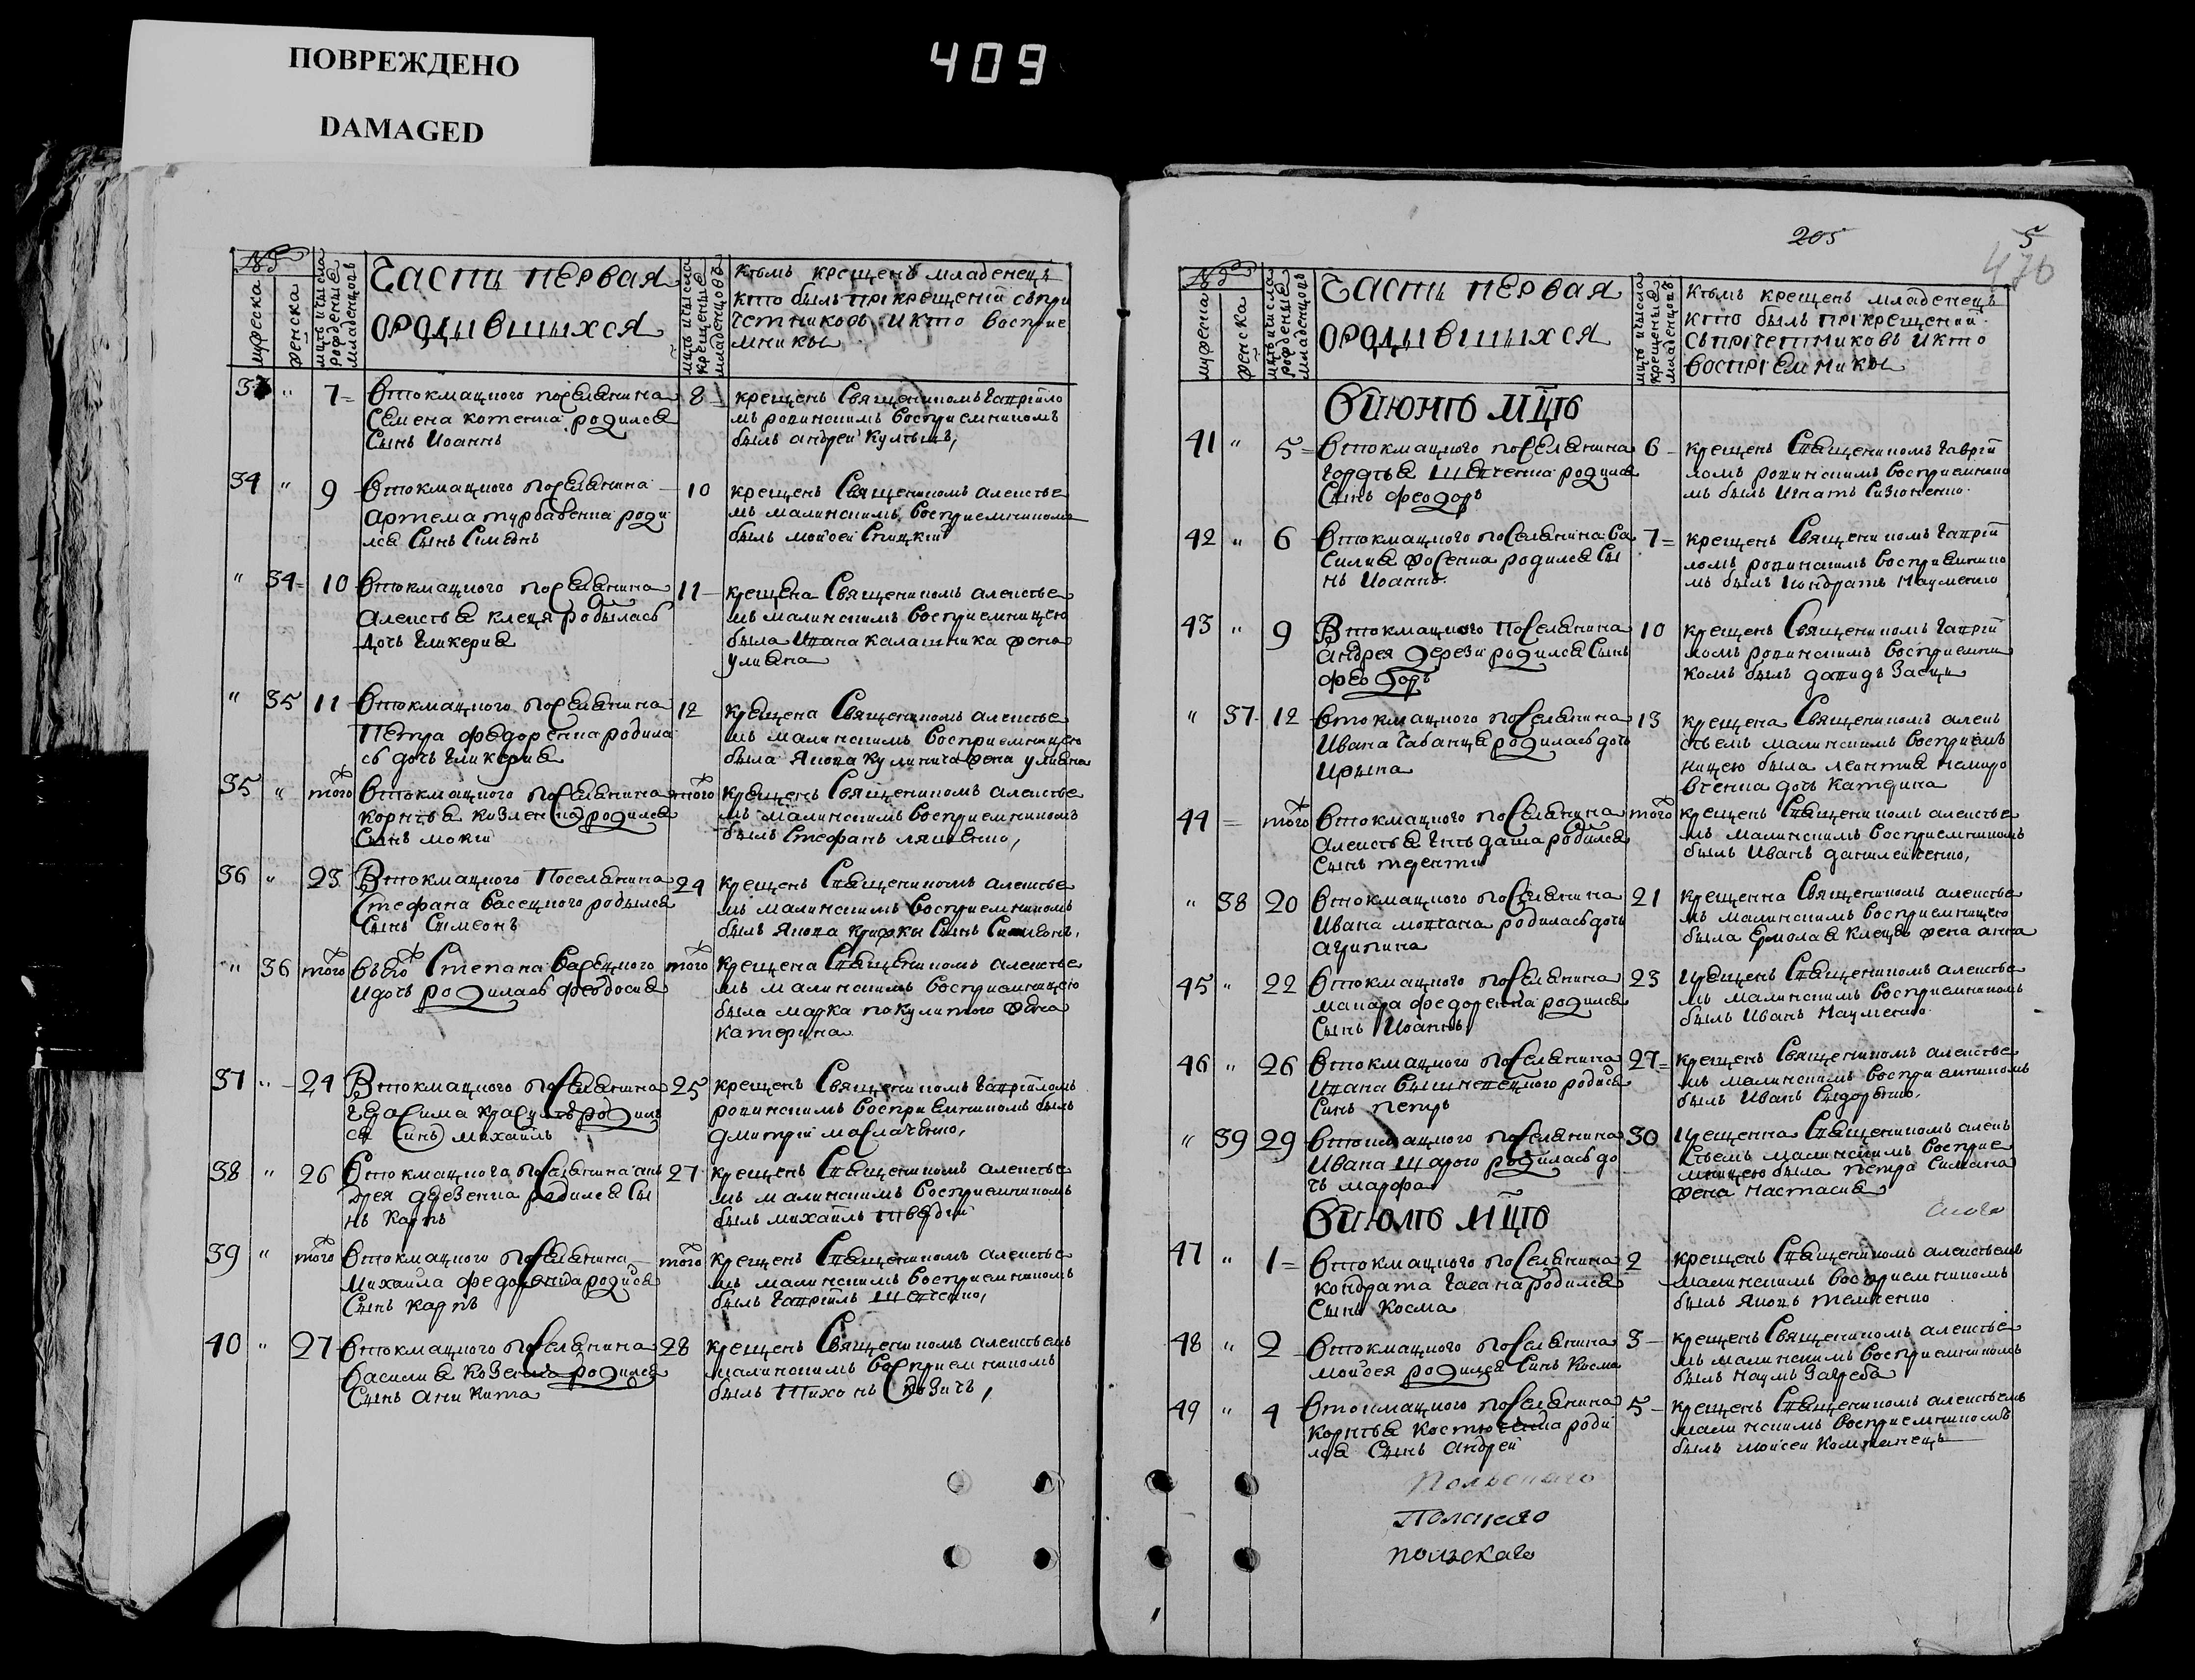 ПОВРЕЖДЕНО
DAMAGED
409
№
мужеска
женска
мцъ и числа рожденыя младенцовъ
Часть первая
ородившихся
мцъ и числа крещеныя младенцовъ
кѣмъ крещенъ младенецъ
кто былъ прікрещеніи съпри
четниковъ и кто восприе
мники
33 " 7 Втокмацкого поселянина
Семена котенка родился
Сынъ Иоаннъ
8 крещенъ Священикомъ гавріило
мъ ровинскимъ восприемникомъ
былъ андрей
34 " 9 Втокмацкого поселянина
Артема турбавенка роди
лся Сынъ Симеонъ
10 крещенъ Священикомъ алексѣе
мъ малинскимъ восприемникомъ
былъ мойсей Спицкий
" 34 10 Втокмацкого поселянина
алексѣя клеця родилась
дочь гликерия
11 крещена Священикомъ алексѣе
мъ малинскимъ восприемницею
была Ивана калашника жена
улияна
" 35 11 Втокмацкого поселянина
Петра федоренка родила
сь дочь гликерия
12 крещена Священикомъ алексѣе
мъ малинскимъ восприемницею
была Якова кулинича жена улияна
35 " того Втокмацкого поселянина
корнѣя козленка родился
Сынъ мокий
того крещенъ Священикомъ алексѣе
мъ малинскимъ восприемникомъ
былъ Стефанъ ляшенко,
36 " 23 Втокмацкого Поселянина
Стефана васецкого родылся
Сынъ Сымеонъ
24 крещенъ Священикомъ алексѣе
мъ малинскимъ восприемникомъ
былъ Якова крижки Сынъ Симеонъ,
" 36 того въ того Степана васецкого
идочь родилась феодосия
того крещена Священикомъ алексѣе
мъ малинскимъ восприемницею
была марка покулитого жена
катерина
37 " 24 Втокмацкого поселянина
герасима красулѣ родил
ся Синъ михаилъ
25 крещенъ Священикомъ гавріиломъ
ровинскимъ восприемникомъ былъ
дмитрій маслаченко,
38 " 26 Втокмацкого поселянина ан
дрея дерезенка родился Сы
нъ карпъ
27 крещенъ Священикомъ алексѣе
мъ малинскимъ восприемникомъ
былъ михаилъ
39 " того Втокмацкого поселянина
михаила федоренка родился
Сынъ карпъ
того крещенъ Священикомъ алексѣе
мъ малинскимъ восприемникомъ
былъ гавріилъ шевченко,
40 " 27 Втокмацкого поселянина
василия родился
Сынъ аникита
28 крещенъ Священикомъ алексѣемъ
малинскимъ восприемникомъ
былъ Тихонъ
205
5
476
№
мужеска
женска
мцъ и числа рожденыя младенцовъ
Часть первая
ородившихся
мцъ и числа крещеныя младенцовъ
кѣмъ крещенъ младенецъ
кто былъ прікрещеніи
съпрічетниковъ и кто
воспріемники
Виюнѣ мцѣ
41 " 5 Втокмацкого поселянина
гордѣя шевченка родился
Сынъ феодоръ
6 крещенъ Священикомъ гаврій
ломъ ровинскимъ восприемнико
мъ былъ Игнатъ Сизоненко
42 " 6 Втокмацкого поселянина ва
силия фосенка родился Сы
нъ Иоаннъ
7 крещенъ Священикомъ гаврій
ломъ ровинскимъ восприемнико
мъ былъ кондратъ Науменко
43 " 9 Втокмацкого Поселянина
андрея дерези родился Сынъ
феодоръ
10 крещенъ Священикомъ гаврій
ломъ ровинскимъ восприемни
комъ былъ давидъ Заець
" 37 12 Втокмацкого поселянина
Ивана Чабанця родилась дочь
Ирына
13 крещена Священикомъ алек
сѣемъ малинскимъ восприем
ницею была леонтия немиро
вченка дочь катерина
44 того Втокмацкого поселянина
алексѣя гнѣдаша родился
Сынъ терентий
того крещенъ Священикомъ алексѣе
мъ малинскимъ восприемникомъ
былъ Иванъ данилейченко,
" 38 20 Втокмацкого поселянина
Ивана мовчана родилась дочь
агрипина
21 крещенна Священикомъ алексѣе
мъ малинскимъ восприемницею
была Ермолая клеця жена анна
45 " 22 Втокмацкого поселянина
макара федоренка родился
Сынъ Иоаннъ
23 крещенъ Священикомъ алексѣе
мъ малинскимъ восприемникомъ
былъ Иванъ Науменко
46 " 26 Втокмацкого поселянина
Ивана Вышневецкого родился
Синъ петръ
27 крещенъ Священикомъ алексѣе
мъ малинскимъ восприемникомъ
былъ Иванъ Сидоренко,
" 39 29 Втокмацкого поселянина
Ивана шарого родилась до
чь марфа
30 крещенна Священикомъ алек
Сѣемъ малинскимъ восприе
мницею была петра Симана
жена настасия
Виюлѣ мцѣ
47 " 1 Втокмацкого поселянина
кондрата родился
Сынъ косма
2 крещенъ Священикомъ алексѣемъ
малинскимъ восприемникомъ
былъ Яковъ темченко
48 " 2 Втокмацкого поселянина
мойсея родился Синъ косма
3 крещенъ Священикомъ алексѣе
мъ малинскимъ восприемникомъ
былъ наумъ Загреба
49 " 4 Втокмацкого поселянина
корнѣя роди
лся Сынъ андрей
5 крещенъ Священикомъ алексѣемъ
малинскимъ восприемникомъ
былъ мойсей
Польскаго
польскаго